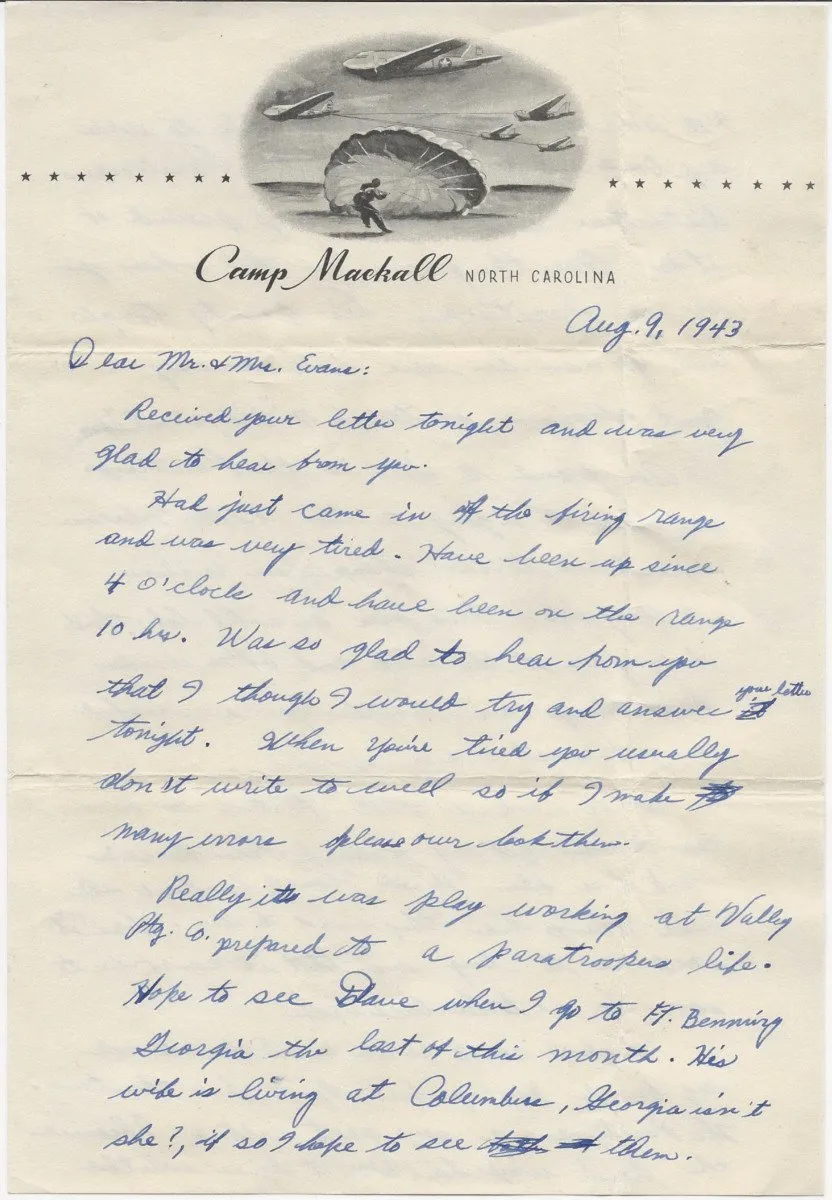 Camp Mackall NORTH CAROLINA
Aug. 9, 1943
Dear Mr. & Mrs. Evans:
Received your letter tonight and was very
glad to hear from you.
Had just came in off the firing range
and was very tired. Have been up since
4 O'clock and have been on the range
10 hrs. Was so glad to hear from you
that I though I would try and answer your letter
tonight. When you're tired you usually
don't write to well so if I make
many errors please over look them.
Really it was play working at Valley
Ptg. Co. prepared to a paratroopers life.
Hope to see Dave when I go to Ft. Benning
Georgia the last of this month. His
wife is living at Columbus, Georgia isn't
she?, if so I hope to see them.